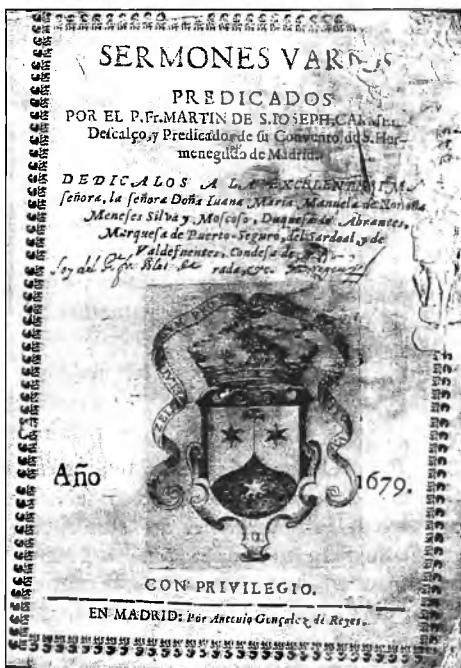 SERMONES VARIOS
PREDICADOS
POR EL P. Fr. MARTIN DE S. IOSEPH, CARMEL.
Descalço, y Predicador de su Convento de S. Her-
menegildo de Madrid.
DEDICALOS A LA EXCELENTISSIMA
señora, la señora Doña Iuana Maria Manuela de Noroña
Meneses Silva y Moscoso, Duquesa de Abrantes,
Marquesa de Puerto-Seguro, del Sardoal, y de
Valdefuentes, Condesa de
Soy del rada, &c.
Año 1679.
CON PRIVILEGIO.
EN MADRID: Por Antonio Gonçalez de Reyes.